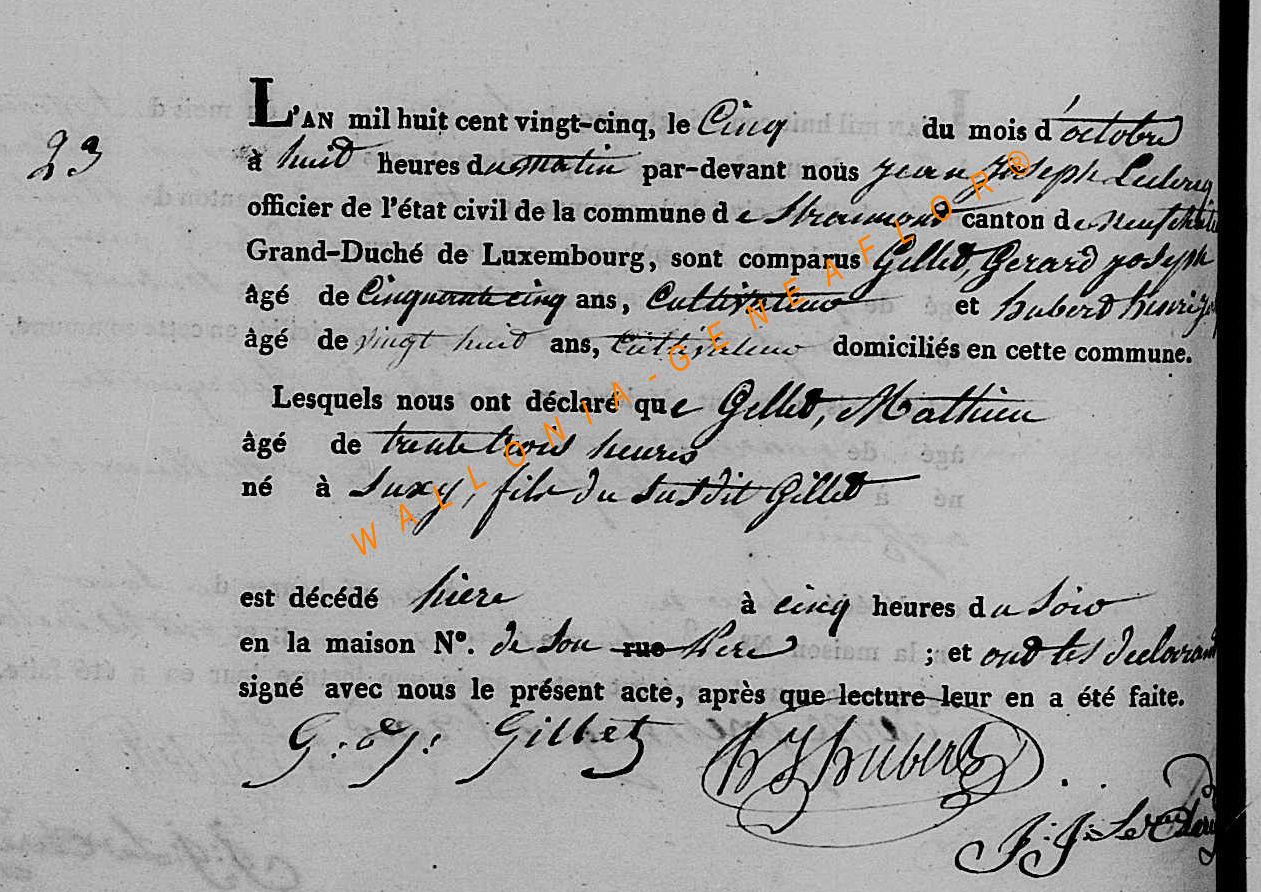 23
L'AN mil huit cent vingt-cinq, le Cinq du mois d'octobre
à huit heures du matin par-devant nous jean joseph Leclercq
officier de l'état civil de la commune de Straimont canton de neufchâteau
Grand-Duché de Luxembourg, sont comparus Gillet, Gerard joseph
âgé de Cinquante cinq ans, Cultivateur et hubert henri
âgé de vingt huit ans, Cultivateur domiciliés en cette commune.
Lesquels nous ont déclaré que Gillet, Mathieu
âgé de trente trois heures
né à Suxy, fils du susdit Gillet
est décédé hiere à cinq heures du soir
en la maison N°. de son rue Pere ; et ont les declarant
signé avec nous le présent acte, après que lecture leur en a été faite.
G. J. Gillet hJhubert
J. J. Leclercq
WALLONIA-GENEAFLOR®